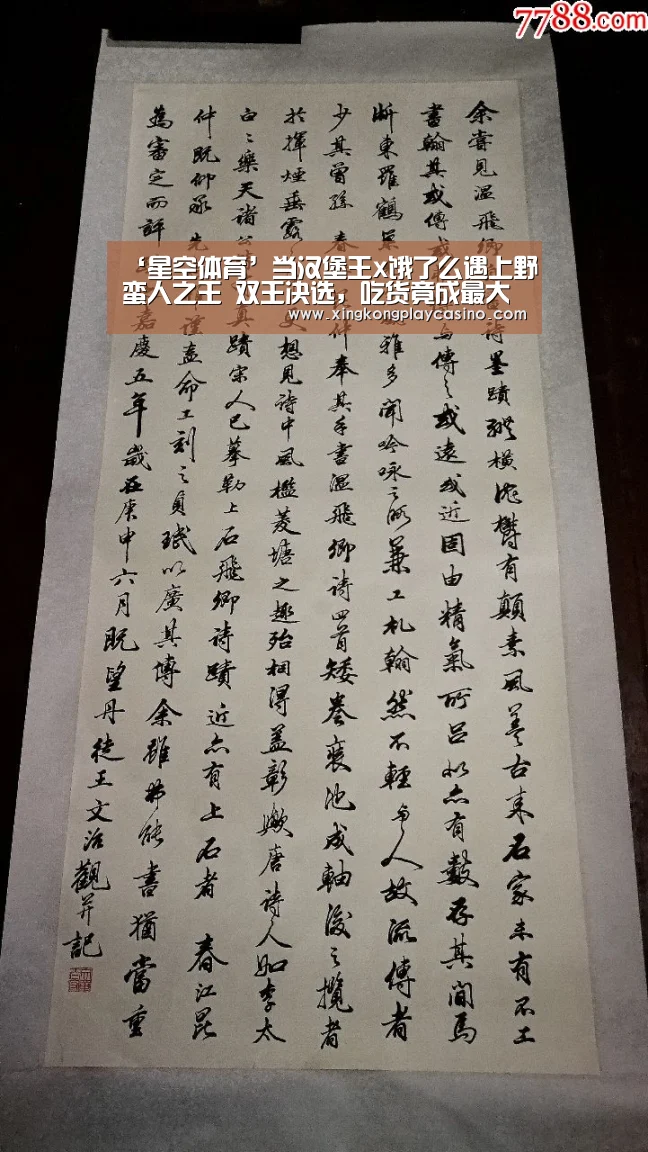 7788.com
‘星空体育’当汉堡王x饿了么遇上野
蛮人之王 双王决选,吃货竟成最大
www.xingkongplaycasino.com
余嘗見溫飛卿詩墨蹟縱横浥欝有顛素風蓋古来石家未有不工
書翰其或傳或与傳之或遠或近固由精氣所呂然亦有數存其間馬
浙東羅鶴雅多聞吟咏之所兼工札翰然不輕与人故流傳者
少其曾孫春仲奉其手書溫飛卿詩四首矮卷裒池成軸後之攬者
於揮煙垂露想見詩中風檻菱塘之趣殆相得益彰歟唐詩人如李太
白白樂天諸真蹟宋人已摹勒上石飛卿詩蹟近亦有上石者春江昆
仲既仰承先謹盍命工刻之貞珉以廣其傳余雖弗能書猶當重
為審定而評嘉慶五年歲在庚申六月既望丹徒王文治觀并記